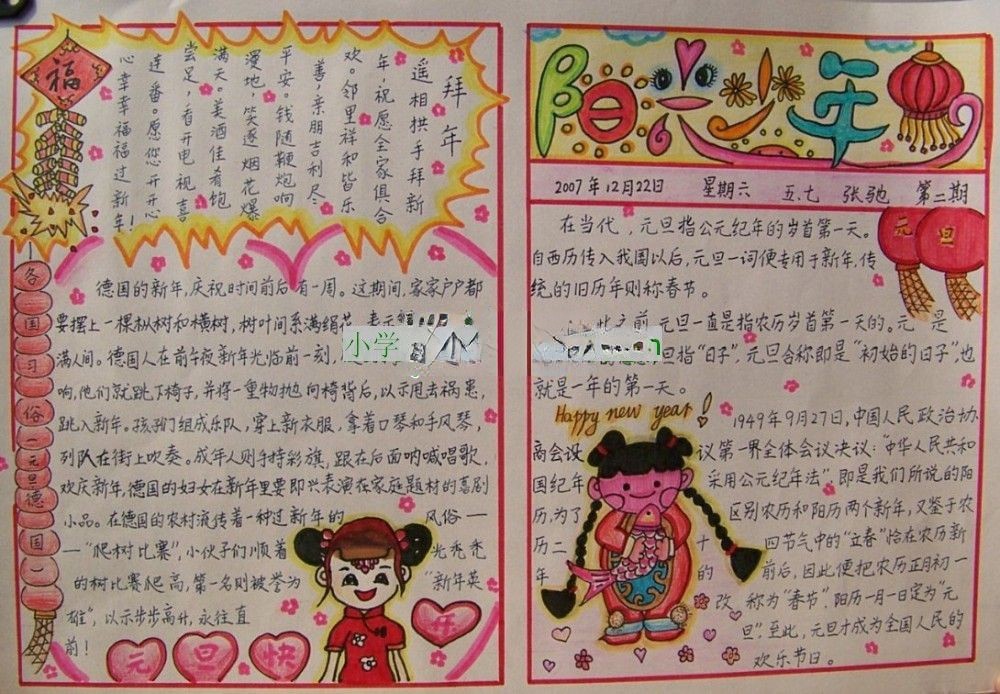 福
拜年
遥相拱手拜新
年,祝愿全家俱合
欢。邻里祥和皆乐
善,亲朋吉利尽
平安。钱随鞭炮响
漫地,笑逐烟花爆
满天。美酒佳肴饱
尝足,看开电视喜
连番。愿您开开心
心幸幸福福过新年!
各国习俗—元旦德国—
德国的新年,庆祝时间前后有一周。过期间,家家户户都
要摆上一棵枞树和横树,树叶间系满绢花,表示
满人间。德国人在前午夜新年光临前一刻,
响,他们就跳下椅子,并将一重物抛向椅背后,以示甩去祸患,
跳入新年。孩子们组成乐队,穿上新衣服,拿着口琴和手风琴,
列队在街上吹奏。成年人则手持彩旗,跟在后面呐喊唱歌,
欢庆新年,德国的妇女在新年里要即兴表演在家庭题材的喜剧
小品。在德国的农村流传着一种过新年的风俗—
—"爬树比赛",小伙子们顺着光秃秃
的树比赛爬高,第一名则被誉为"新年英
雄",以示步步高升,永往直
前!
元旦快乐
小学
小
阳光少年
2007年12月22日 星期六 五.七 张弛 第二期
元旦
在当代,元旦指公元纪年的岁首第一天。
自西历传入我国以后,元旦一词便专用于新年,传
统的旧历年则称春节。
此之前,元旦一直是指农历岁首第一天的。元 是
旦指"日子",元旦合称即是"初始的日子",也
就是一年的第一天。
Happy new year!
1949年9月27日,中国人民政治协
商会议议第一界全体会议决议:"中华人民共和
国纪年采用公元纪年法",即是我们所说的阳
历,为了区别农历和阳历两个新年,又鉴于农
历二十四节气中的"立春"恰在农历新
年的前后,因此便把农历正月初一
改称为"春节",阳历一月一日定为"元
旦",至此,元旦才成为全国人民的
欢乐节日。